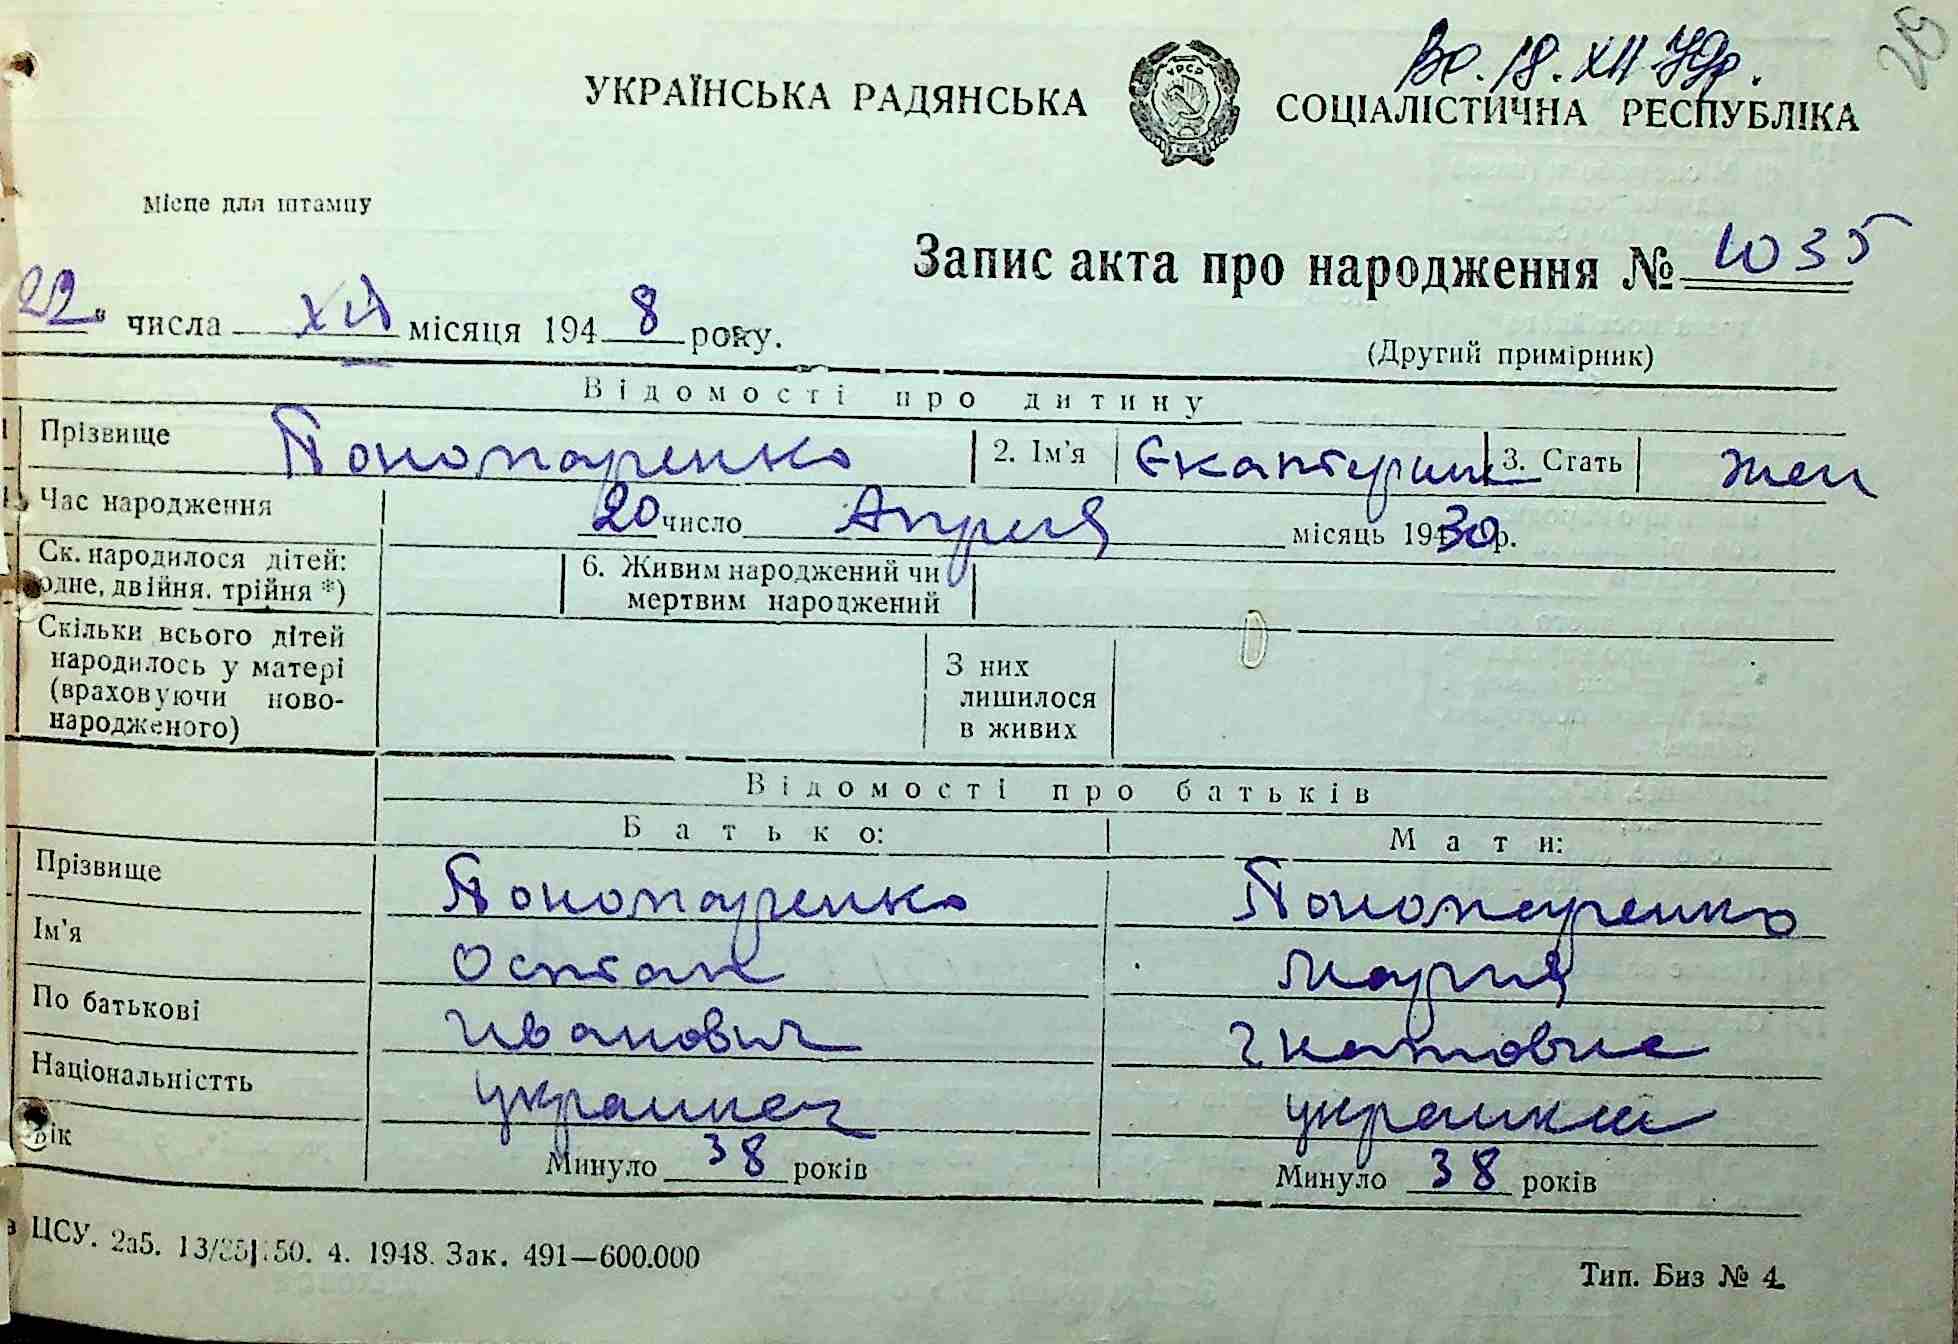 Вс. 18. XII 49р.
29
УКРАЇНСЬКА РАДЯНСЬКА СОЦІАЛІСТИЧНА РЕСПУБЛІКА
УРСР
Місце для штампу
Запис акта про народження № 1035
22. числа XII місяця 1948 року.
(Другий примірник)
Відомості про дитину
Прізвище Пономаренко 2. Ім'я Екатерина 3. Стать жен
Час народження 20 число Апреля місяць 1930 р.
Ск. народилося дітей: одне, двійня, трійня *) 6. Живим народжений чи мертвим народжений
Скільки всього дітей народилось у матері (враховуючи ново-народженого) З них лишилося в живих
Відомості про батьків
Батько: Мати:
Прізвище Пономаренко Пономаренко
Ім'я Остап Мария
По батькові Иванович
Національністть украинец украинка
Вік Минуло 38 років Минуло 38 років
ЦСУ. 2а5. 50. 4. 1948. Зак. 491—600.000
Тип. Биз № 4